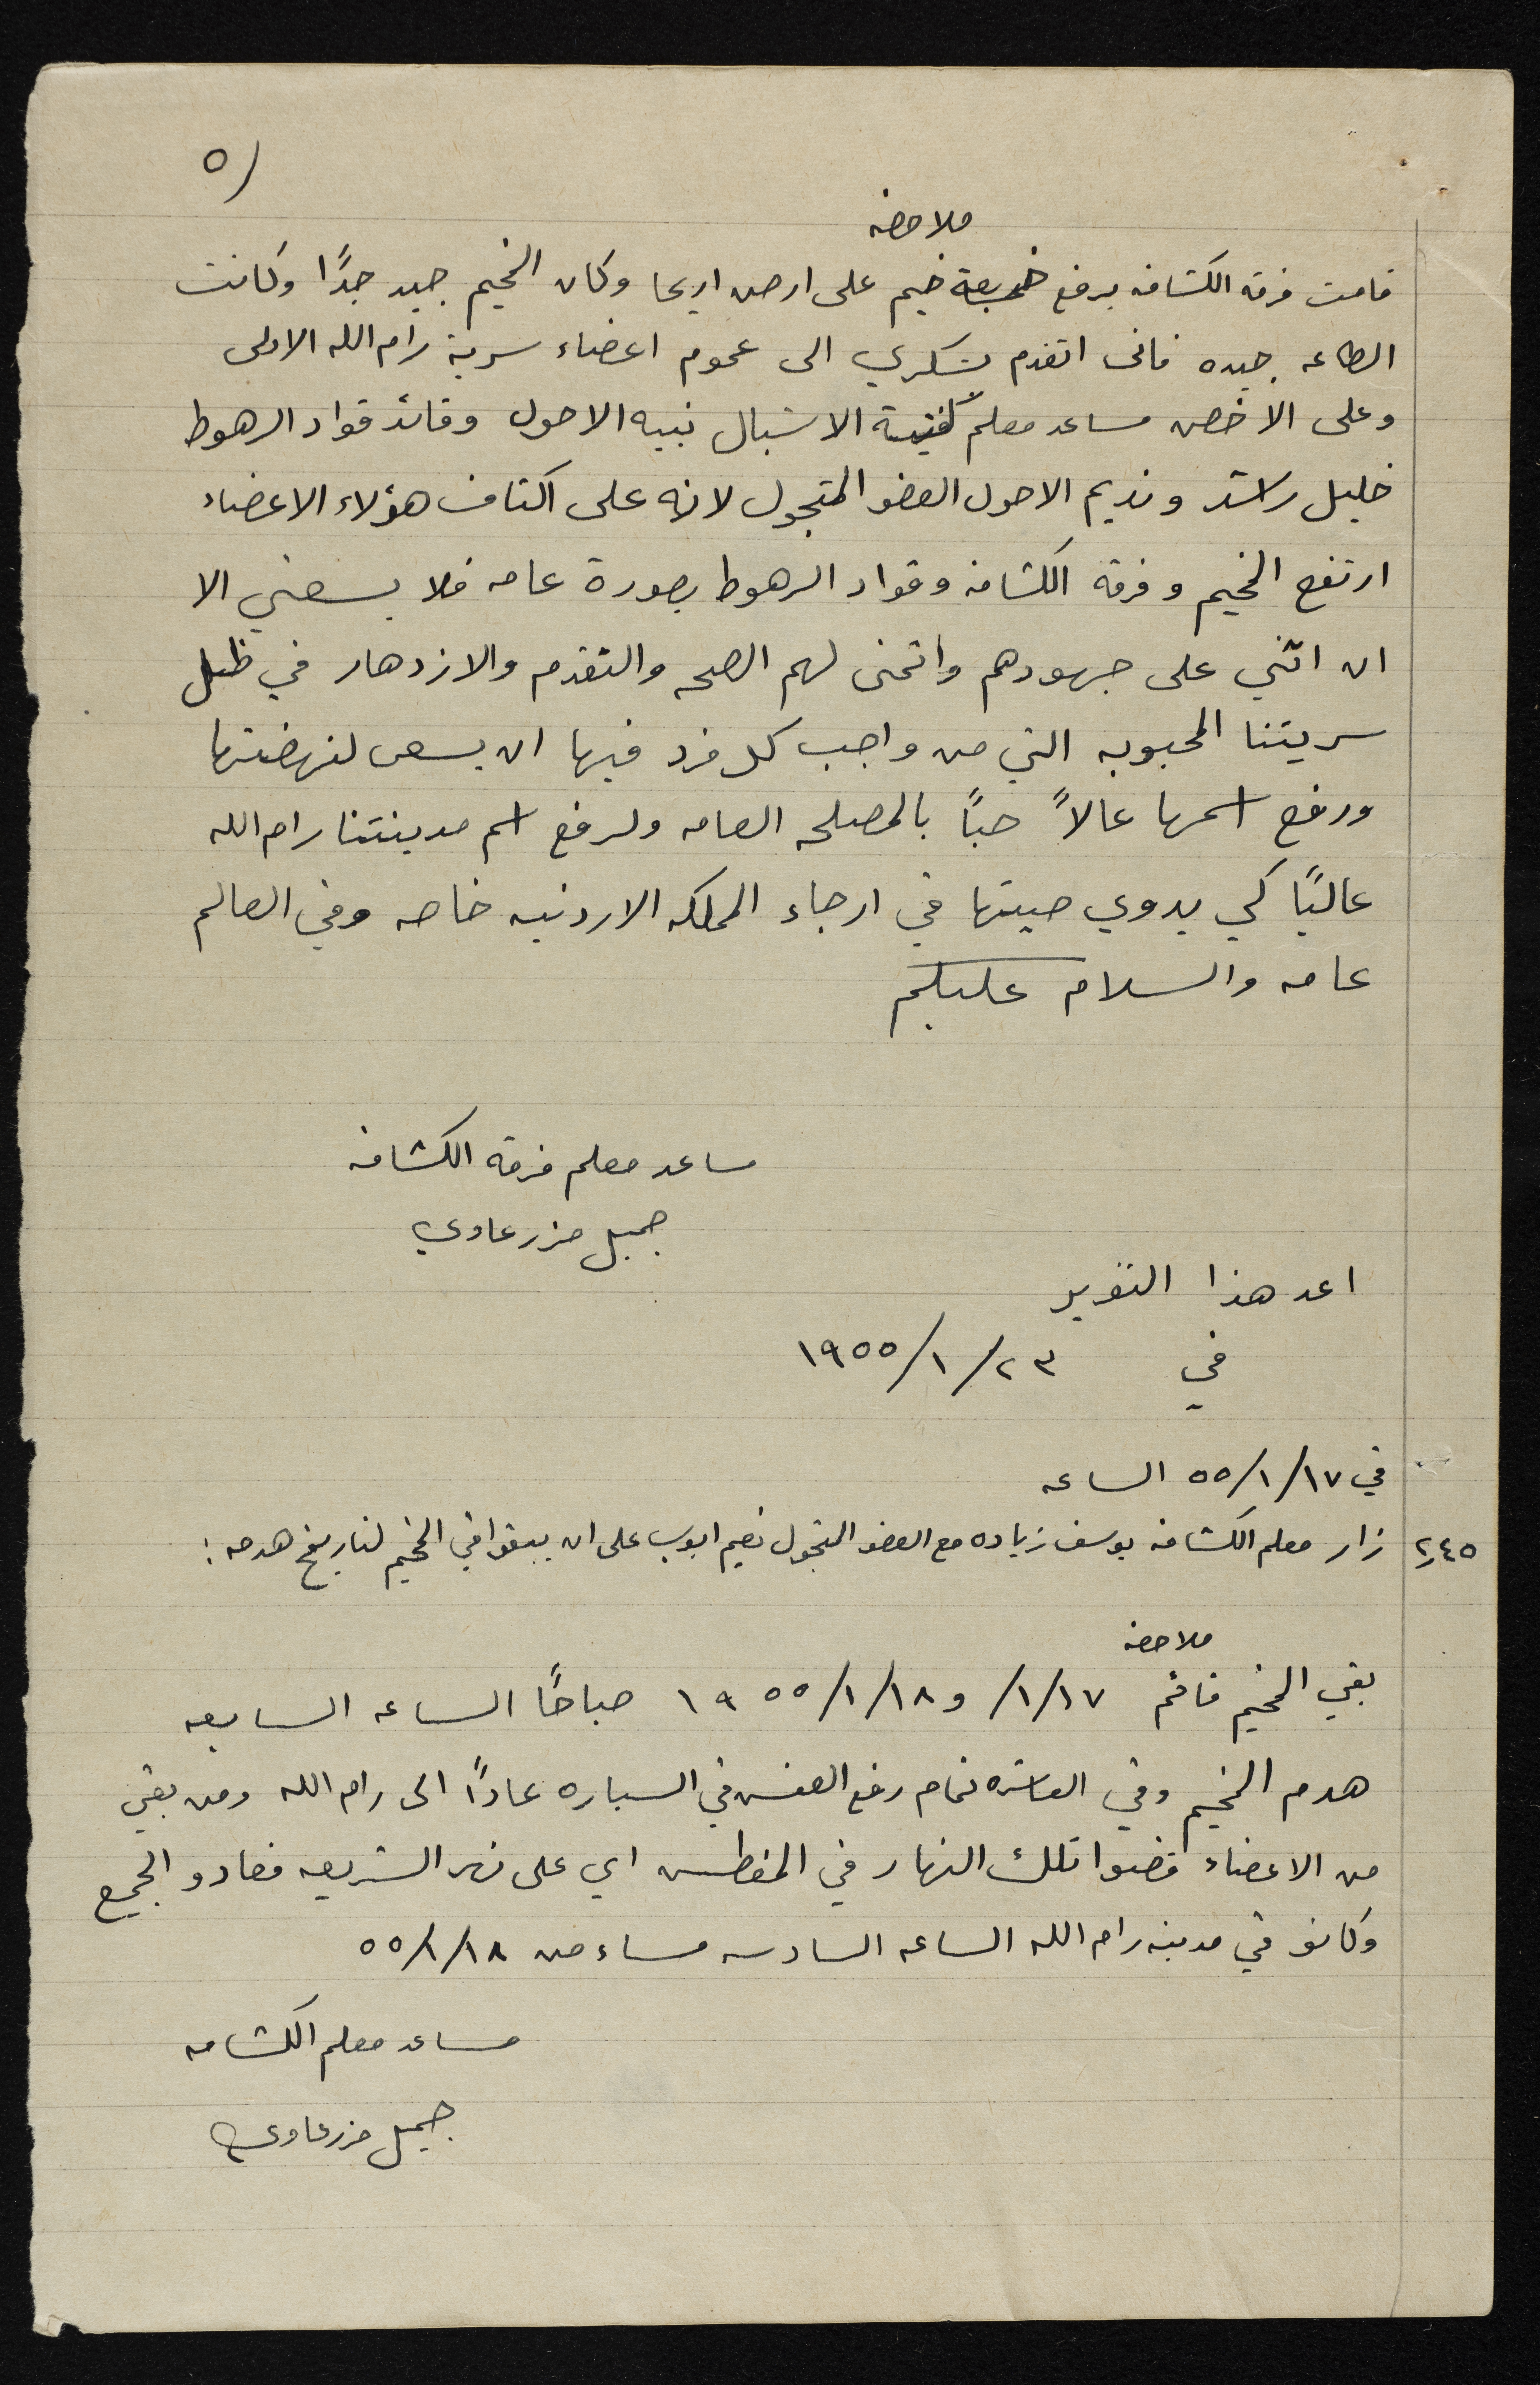 ٥)
ملاحضه
قامت فرقة الكشافه برفع خيم على ارض اريحا وكان المخيم جيد جدًا وكانت
الطاعه جيده فانى اتقدم بشكري الى عموم اعضاء سرية رام الله الاولى
وعلى الاخص مساعد معلم الاشبال نبيه الاحول وقائد قواد الرهوط
خليل راشد ونديم الاحول العضو المتجول لانه على اكتاف هؤلاء الاعضاء
ارتفع المخيم وفرقة الكشافه وقواد الرهوط بصورة عامه فلا يسعني الا
ان اثني على جهودهم واتمنى لهم الصحه والتقدم والازدهار في ظل
سريتنا المحبوبه التي من واجب كل فرد فيها ان يسعى لنهضتها
ورفع اسمها عالاً حبًا بالمصلحه العامه ولرفع اسم مدينتنا رام الله
عاليًا كي يدوي صيتها في ارجاء المملكه الاردنيه خاصه وفي العالم
عامه والسلام عليكم
مساعد معلم فرقة الكشافه
جميل مزرعاوي
اعد هذا التقرير
في ٢٣/١/١٩٥٥
في ١٧/١/٥٥ الساعه
٢٫٤٥ زار معلم الكشافه يوسف زياده مع العضو المتجول نعيم ايوب على ان يبقوا في المخيم لتاريخ هدمه :
ملاحضه
بقي المخيم قائم ١٧/١/ و ١٨/١/١٩٥٥ صباحًا الساعه السابعه
هدم المخيم وفي العاشره تمام رفع العفش في السياره عادًا الى رام الله ومن بقي
من الاعضاء قضوا تلك النهار في المغطس اي على نهر الشريعه فعادو الجميع
وكانو في مدينة رام الله الساعه السادسه مساء من ١٨/١/٥٥
مساعد معلم الكشافه
جميل مزرعاوي